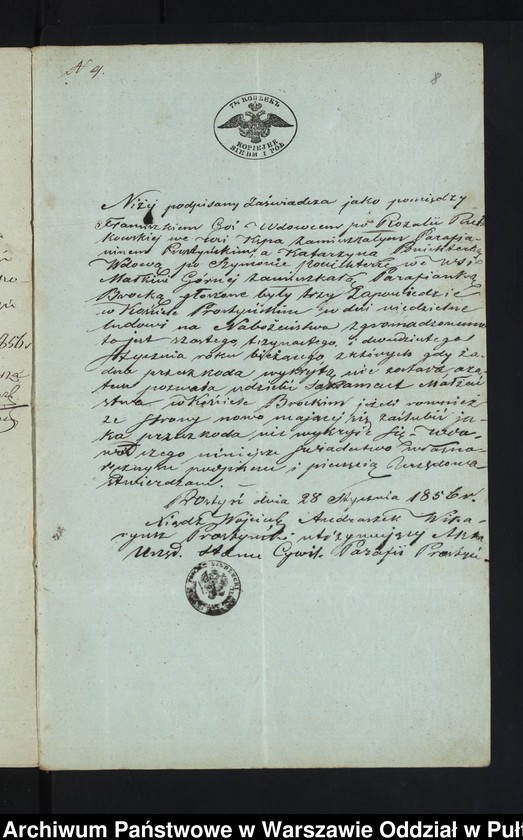 N 4.
8
7½ КОПѢЕКЪ
KOPIEJEK
SIEDM I PÓŁ
Niżej podpisany zaświadcza jako pomiędzy
Franciszkiem Goś Wdowcem po Rozalii
kowskiej we Wsi Kępa zamieszkałym Parafia-
ninem Prostyńskim, a Katarzyną
Wdową po Szymonie we Wsi
Małkini Górnej zamieszkałą Parafianką
Brocką, głoszone były trzy Zapowiedzie
w Kościele Prostyńskim w dni niedzielne
ludowi na Nabożeństwo zgromadzonemu
to jest szóstego, trzynastego, i dwudziestego
Stycznia roku bieżącego, z których gdy ża-
dna przeszkoda wykrytą nie została, a za-
tem pozwala udzielić Sakrament Małżeń-
stwa w Kościele Brockim jeżeli również
ze strony nowo mającej się zaślubić ja-
ka przeszkoda nie wykryje się
czego niniejsze Świadectwo własno-
ręcznym podpisem i pieczęcią Urzędową
stwierdzam. —
Prostyń dnia 28 Stycznia 1856 r.
Ksiądz Wojciech Andraszek Wika-
ryusz Prostyński utrzymujący Akta
Urzęd. Stanu Cywil. Parafii Prostyń-
Archiwum Państwowe w Warszawie Oddział w Puł